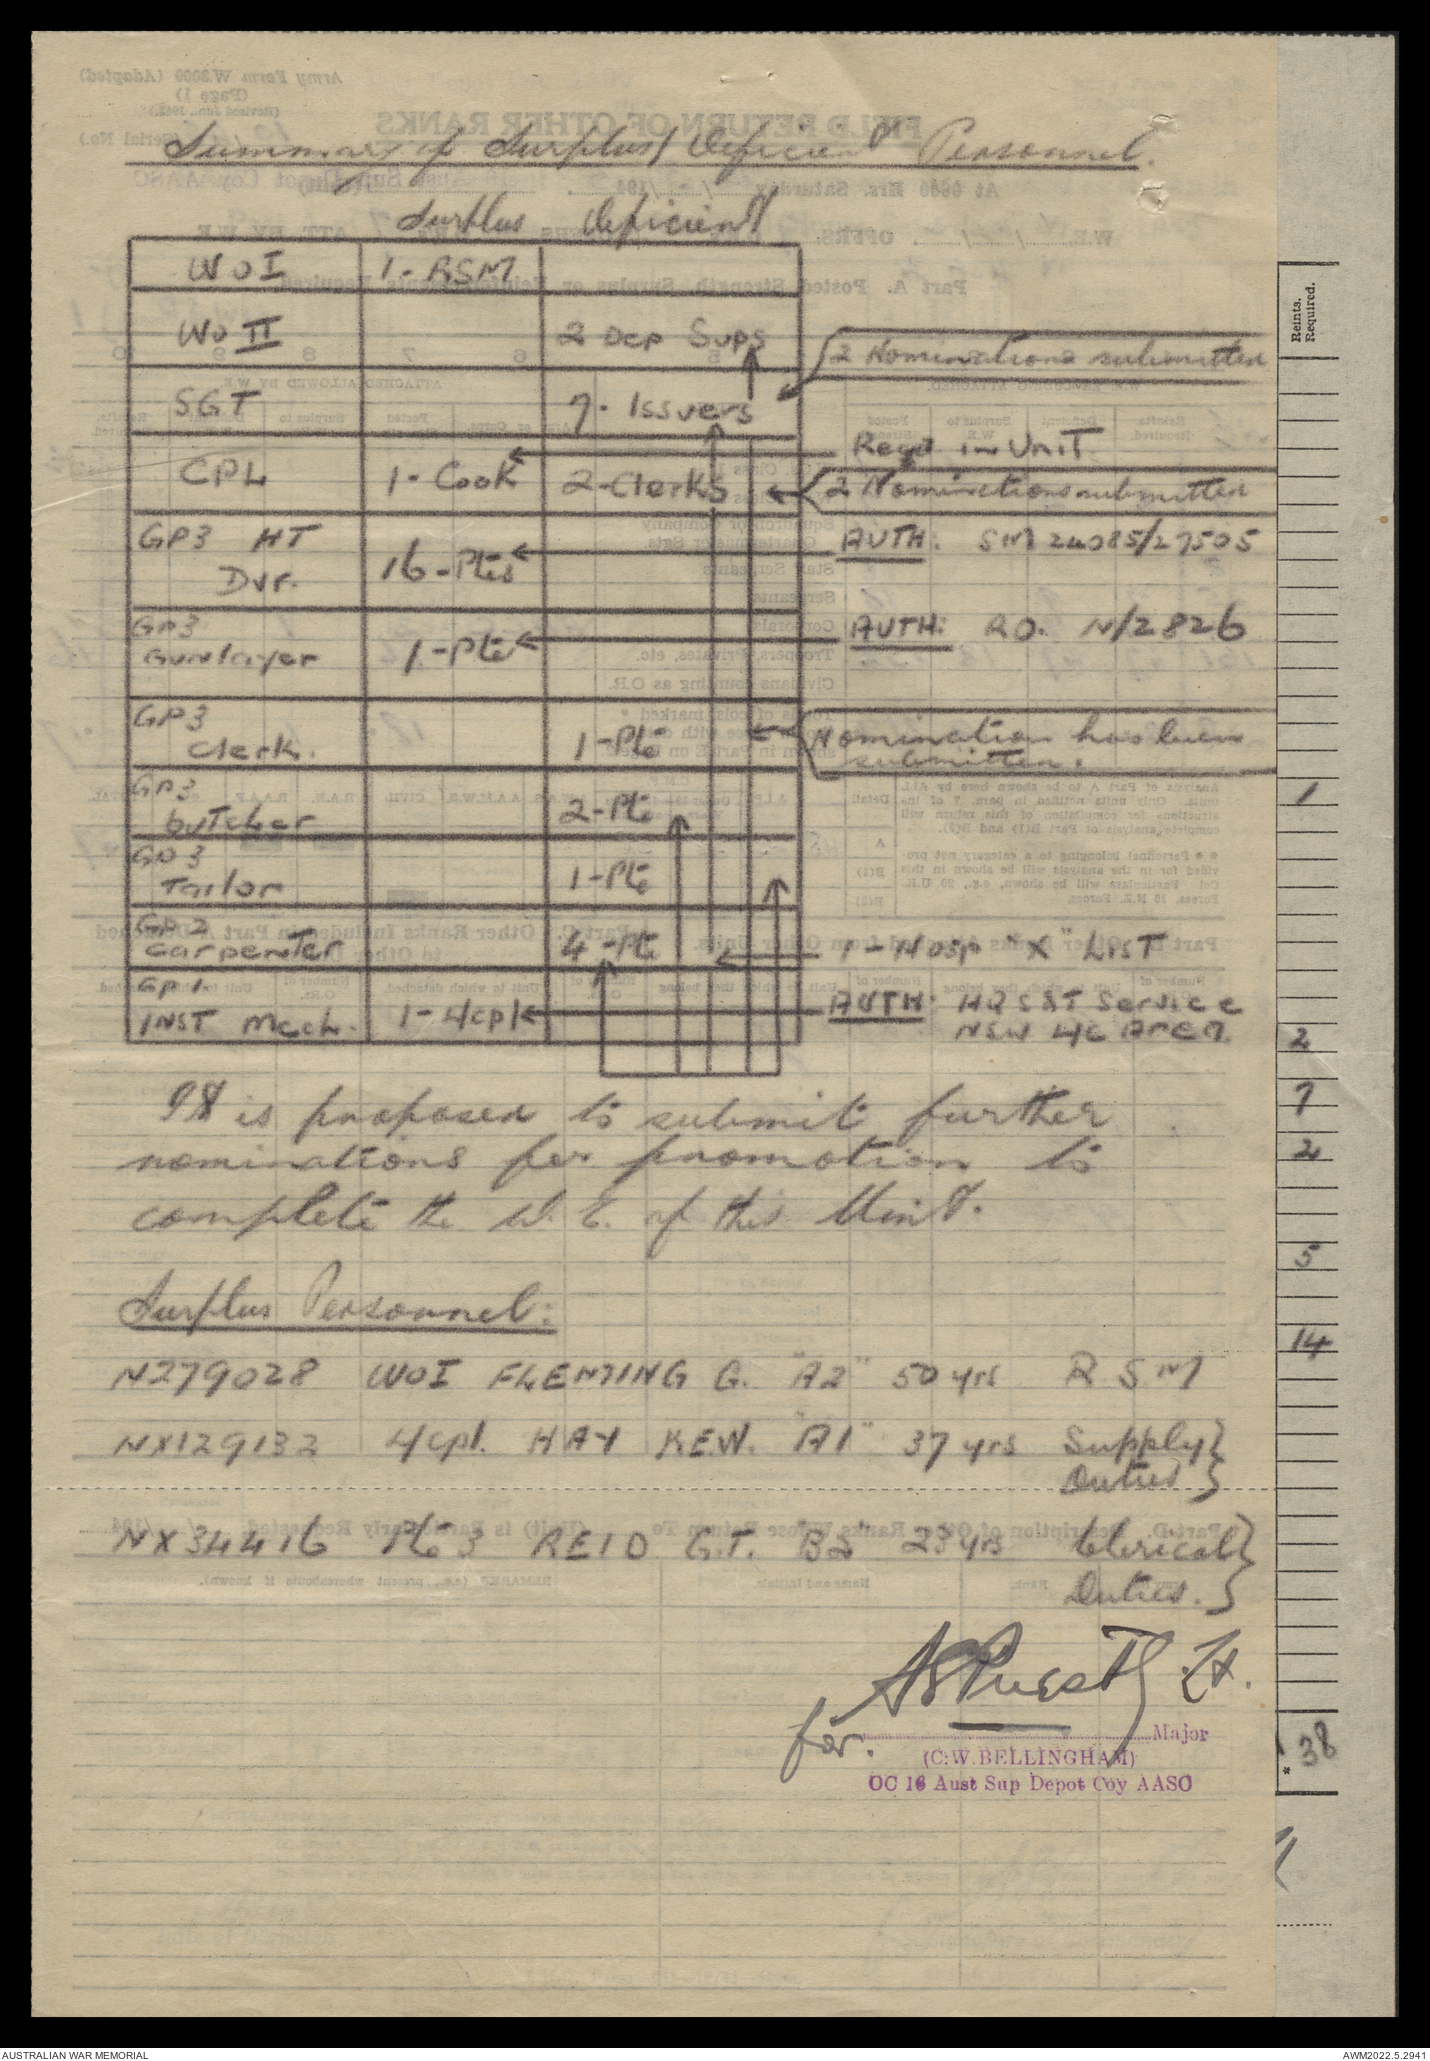 Summary of Surplus/Deficient Personnel.
Surplus Deficient
WOI 1-RSM
WO II 2 Dep Sups
2 Nominations submitted
SGT 7-Issuers
Reqd in Unit
CPL 1-Cook 2-Clerks
2 Nominations submitted
GP3 HT Dvr. 16-Ptes
AUTH: SM 24085/27505
GP3 Gunlayer 1-Pte
AUTH: RO. N/2826
GP3 Clerk. 1-Pte
Nomination has been
submitted.
GP3 butcher 2-Pte
GP3 Tailor 1-Pte
GP2 carpenter 4-Pte
1-Hosp "X" LIST
GP 1 INST Mech. 1-L/cpl
AUTH: HQ S&T Service
NSW L of C Area.
It is proposed to submit further
nominations for promotion to
complete the W.E. of this Unit.
Surplus Personnel:
N279028 WOI FLEMING G. "A2" 50 yrs R S M
NX129132 L/cpl. HAY K.E.W. "A1" 37 yrs Supply }
Duties }
NX34416 Pte 3 REID G.T. "B2" 23 yrs Clerical }
Duties. }
Lt.
for. Major
(C.W. BELLINGHAM)
OC 16 Aust Sup Depot Coy AASC
Reints.
Required.
1
2
7
2
5
14
* 38
AUSTRALIAN WAR MEMORIAL
AWM2022.5.2941